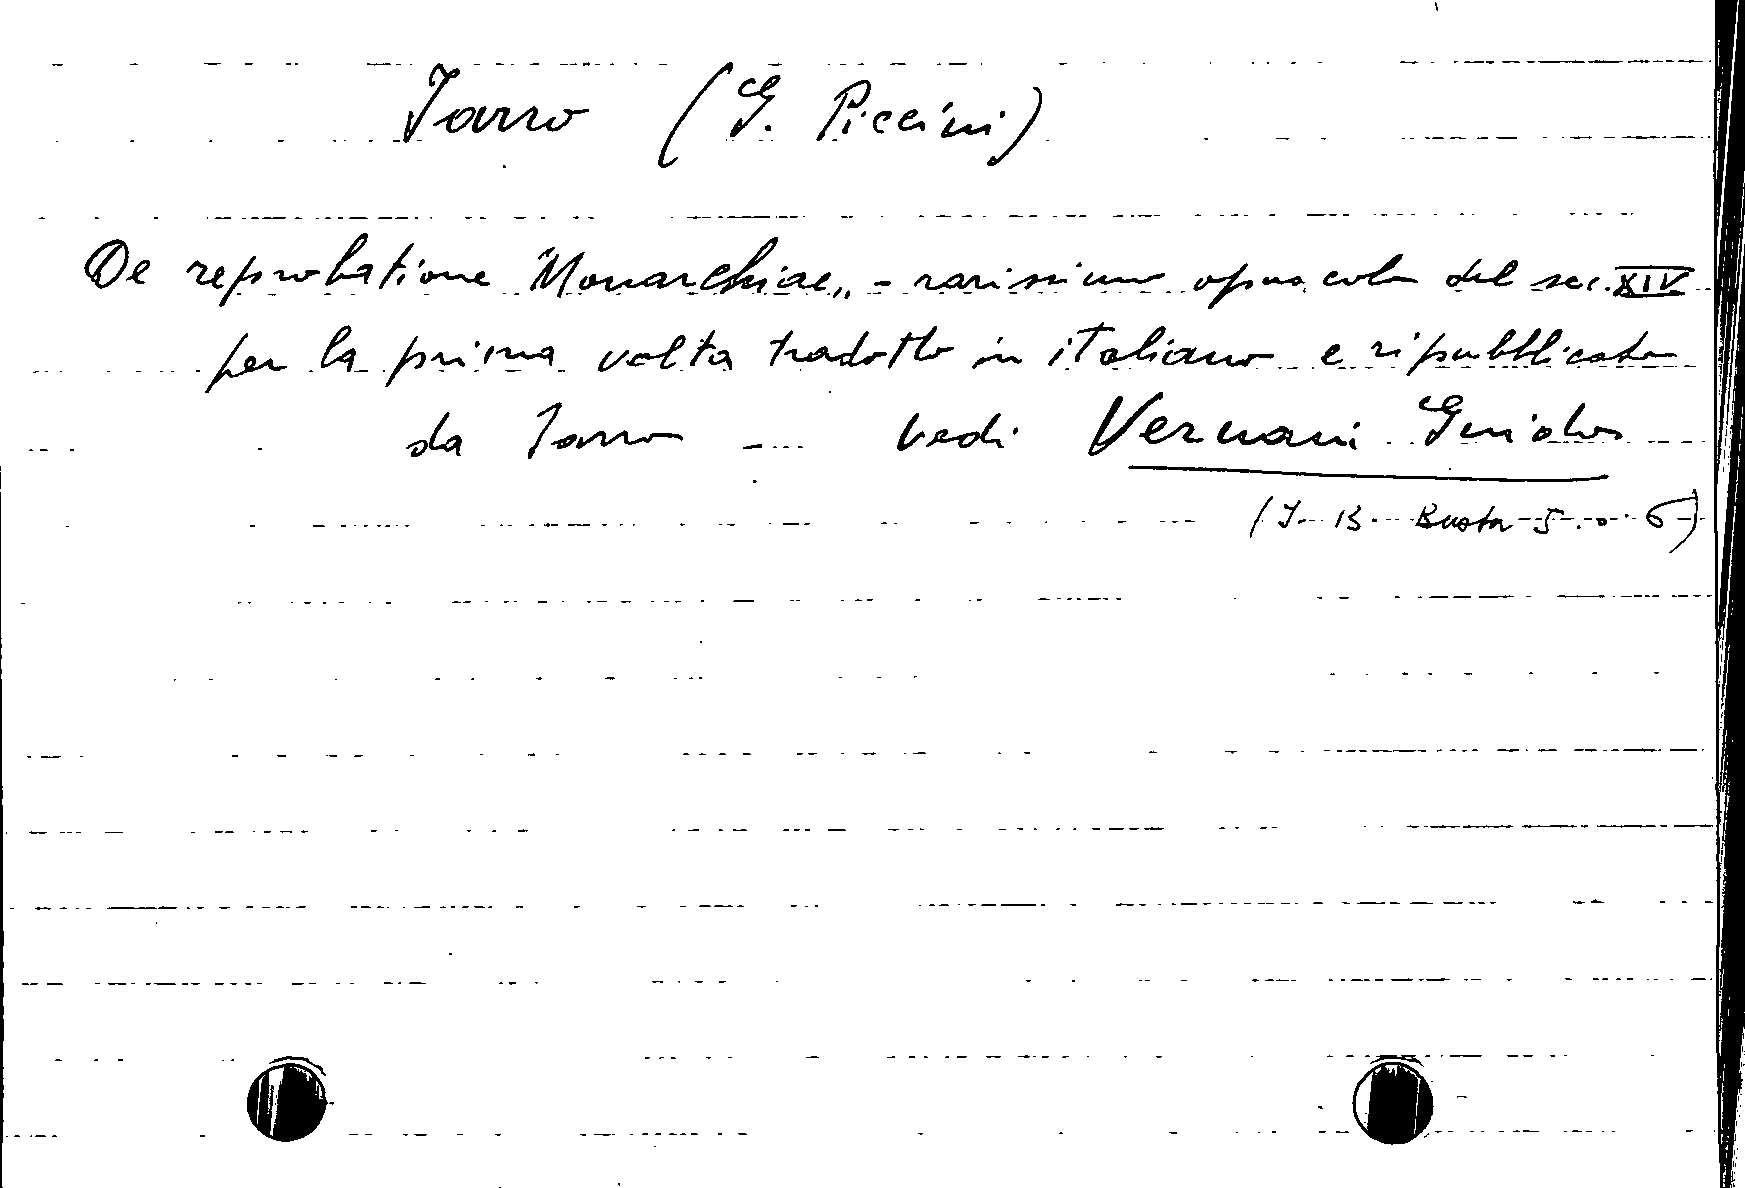 Jarro (G. Piccini)
De reprobatione "Monarchiae„ - rarissimo opuscolo del sec. XIV
per la prima volta tradotto in italiano e ripubblicato
da Jarro - vedi Vernani Guido
(I. B. Busta 5 . o . 6)